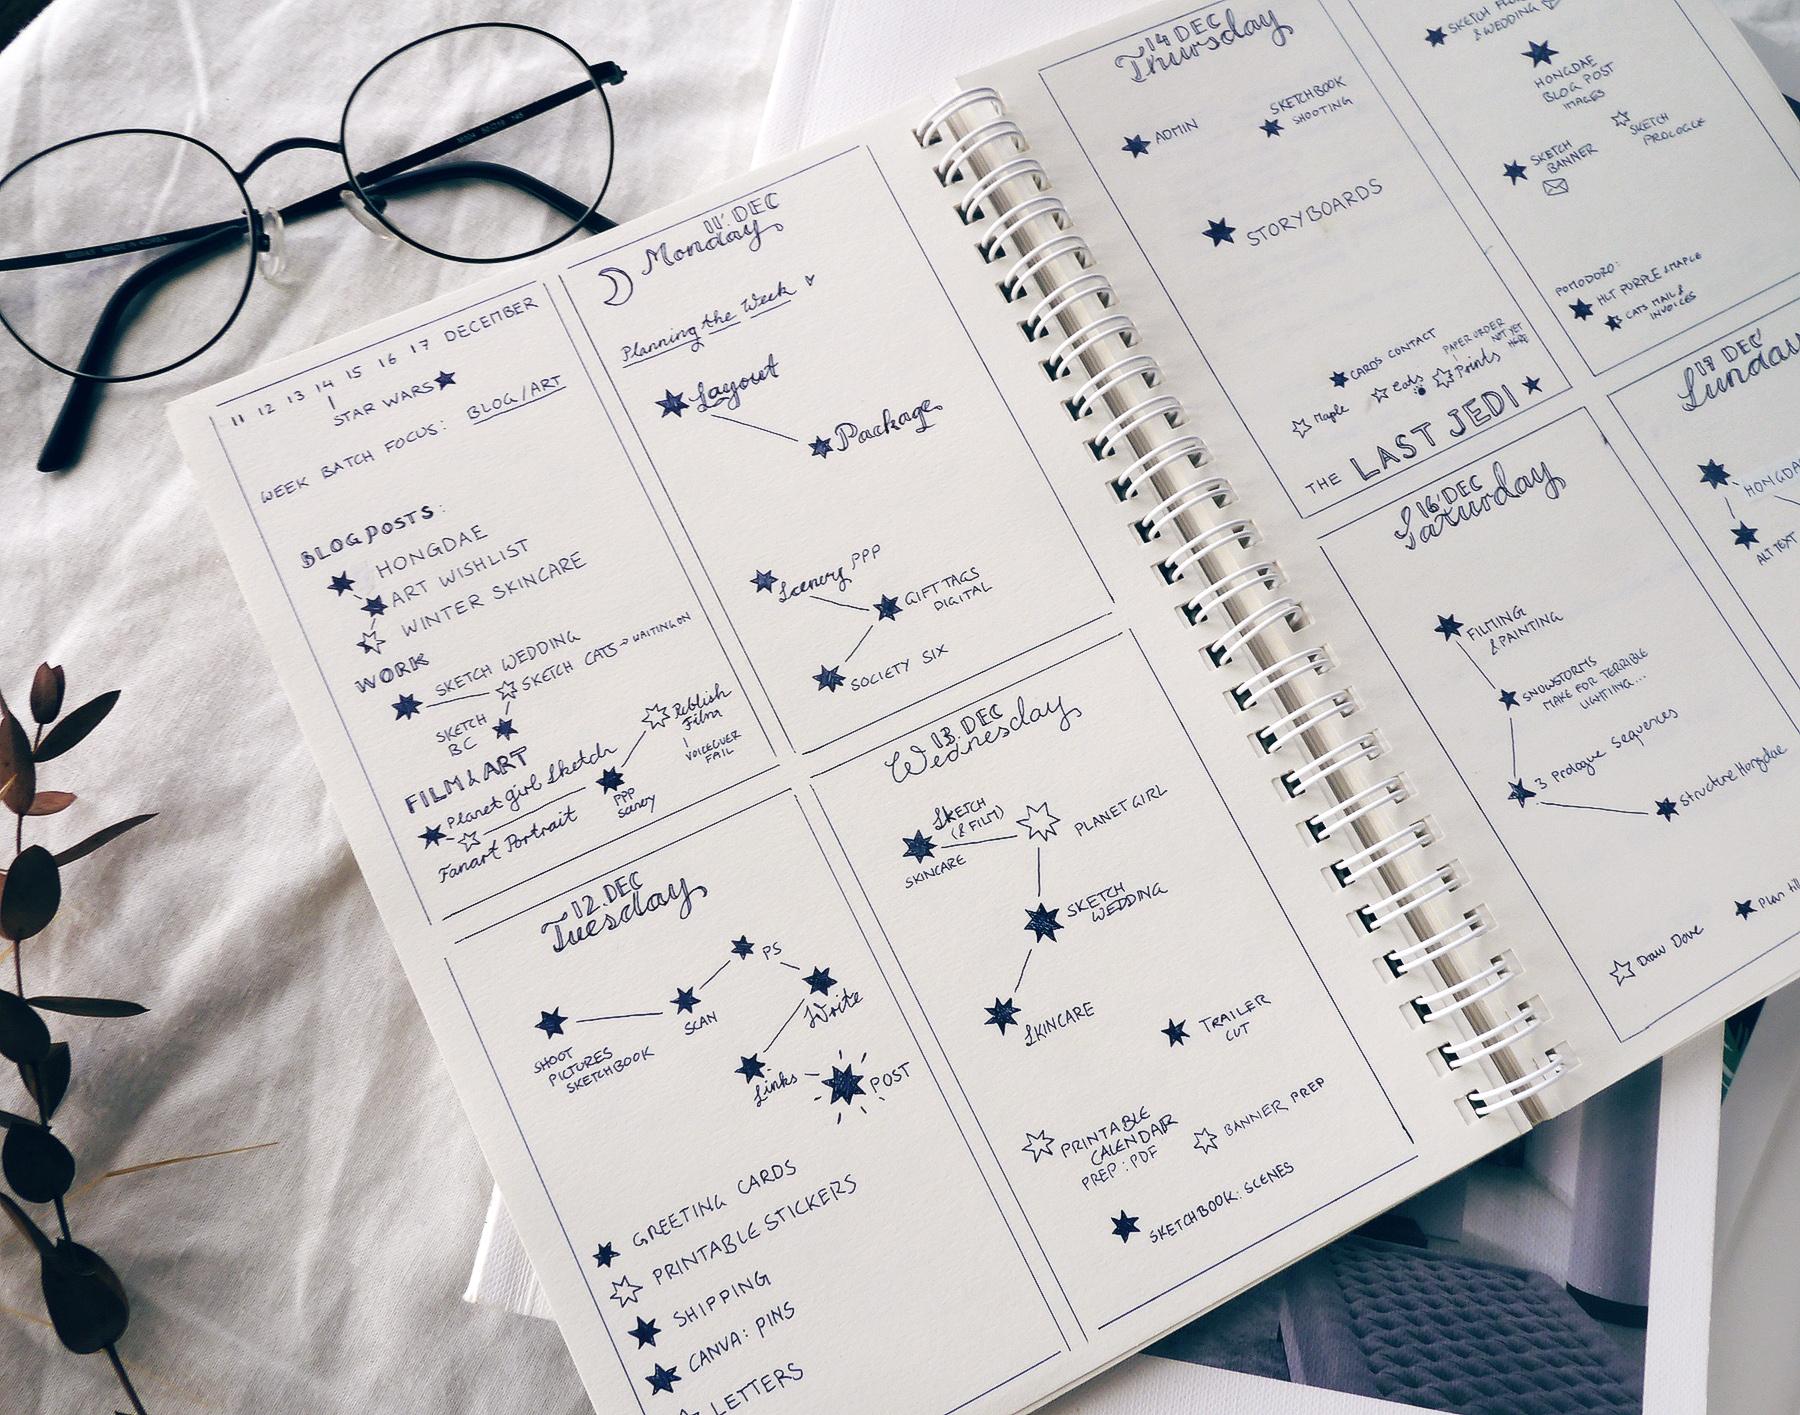 11 12 13 14 15 16 17 DECEMBER
STAR WARS
WEEK BATCH FOCUS: BLOG/ART
BLOGPOSTS:
HONGDAE
ART WISHLIST
WINTER SKINCARE
WORK
SKETCH WEDDING
SKETCH CATS → WAITING ON
SKETCH
BC
FILM & ART
Planet girl Sketch
Fanart Portrait
PPP
Scenery
Film
VOICEOVER
FAIL
11. DEC
Monday
Planning the Week
Layout
Package
Scenery PPP
GIFT TAGS
DIGITAL
SOCIETY SIX
12. DEC
Tuesday
SHOOT
PICTURES
SKETCHBOOK
SCAN
PS
Write
Links
POST
GREETING CARDS
PRINTABLE STICKERS
SHIPPING
CANVA: PINS
LETTERS
13. DEC
Wednesday
SKETCH
(& FILM)
SKINCARE
PLANET GIRL
SKETCH
WEDDING
SKINCARE
TRAILER
CUT
PRINTABLE
CALENDAR
PREP: PDF
BANNER PREP
SKETCHBOOK: SCENES
14 DEC
Thursday
ADMIN
SKETCHBOOK
SHOOTING
STORYBOARDS
CARDS CONTACT
Maple
Cats
Prints
PAPER ORDER
NOT YET
HERE
THE LAST JEDI
& WEDDING
HONGDAE
BLOG POST
IMAGES
SKETCH
PROLOGUE
SKETCH
BANNER
POMODORO:
HLT PURPLE & MAPLE
CATS MAIL &
INVOICES
16 DEC
Saturday
FILMING
& PAINTING
SNOWSTORMS
MAKE FOR TERRIBLE
LIGHTING...
3 Prologue Sequences
Structure Hongdae
Draw Dove
Plan
17 DEC
Sunday
ALT TEXT